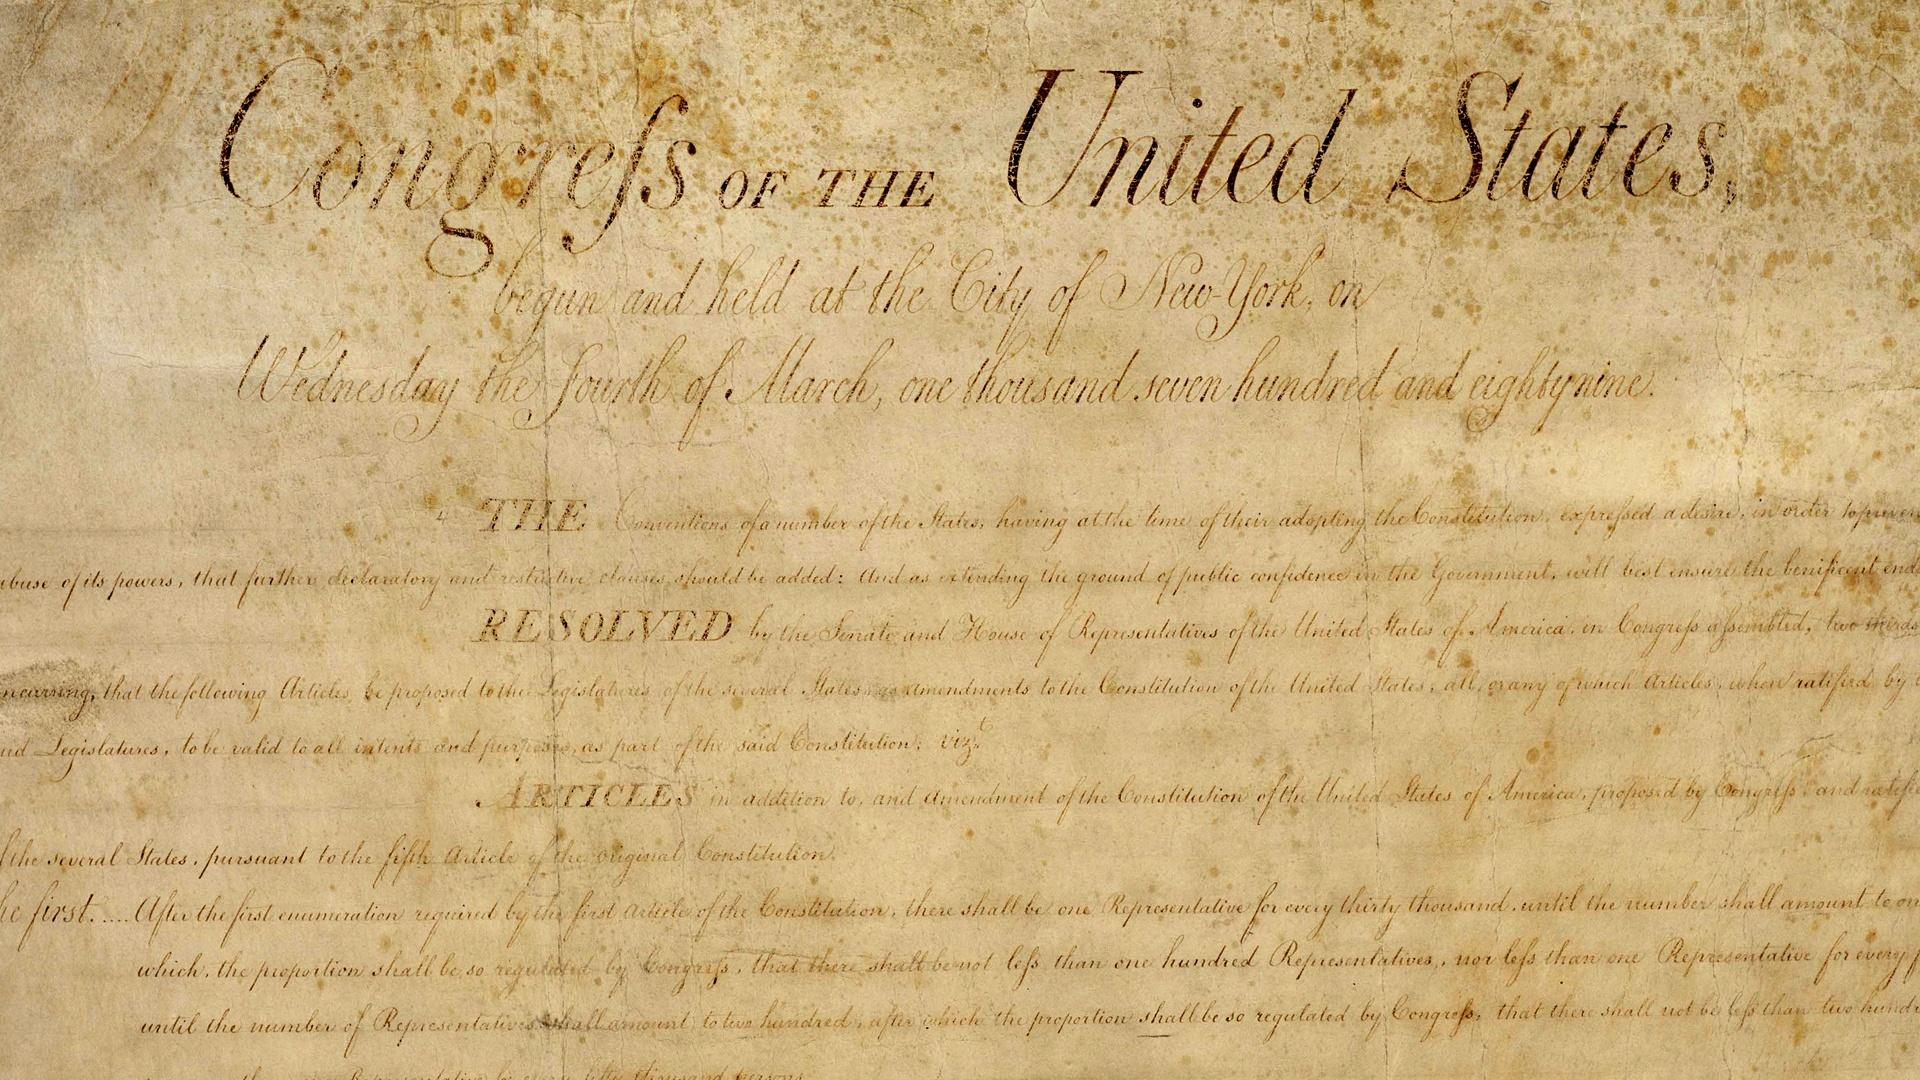 Congreſs OF THE United States,
begun and held at the City of New-York, on
Wednesday the fourth of March, one thousand seven hundred and eighty nine.
THE Conventions of a number of the States, having at the time of their adopting the Constitution, expreſsed a desire, in order to preven
abuse of its powers, that further declaratory and restrictive clauses should be added: And as extending the ground of public confidence in the Government, will best ensure the benificent end
RESOLVED by the Senate and House of Representatives of the United States of America, in Congreſs aſsembled, two thirds
ncurring, that the following Articles be proposed to the Legislatures of the several States, as amendments to the Constitution of the United States, all, or any of which Articles, when ratified by
aid Legislatures, to be valid to all intents and purposes, as part of the said Constitution; vizt
ARTICLES in addition to, and amendment of the Constitution of the United States of America, proposed by Congreſs and ratifie
f the several States, pursuant to the fifth Article of the original Constitution.
he first..... After the first enumeration required by the first Article of the Constitution, there shall be one Representative for every thirty thousand, until the number shall amount to on
which, the proportion shall be so regulated by Congreſs, that there shall be not leſs than one hundred Representatives, nor leſs than one Representative for every f
until the number of Representatives shall amount to two hundred, after which the proportion shall be so regulated by Congreſs, that there shall not be leſs than two hundr
Representative for every fifty thousand persons.